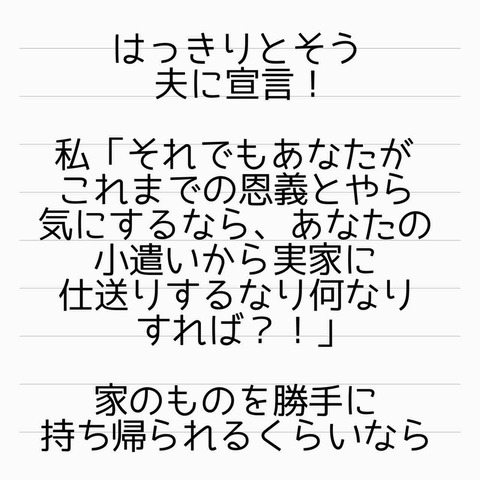 はっきりとそう
夫に宣言！
私「それでもあなたが
これまでの恩義とやら
気にするなら、あなたの
小遣いから実家に
仕送りするなり何なり
すれば？！」
家のものを勝手に
持ち帰られるくらいなら